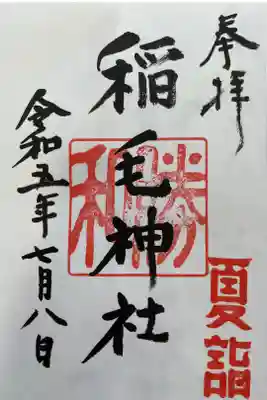 奉拝
稲毛神社
勝利
夏詣
令和五年七月八日